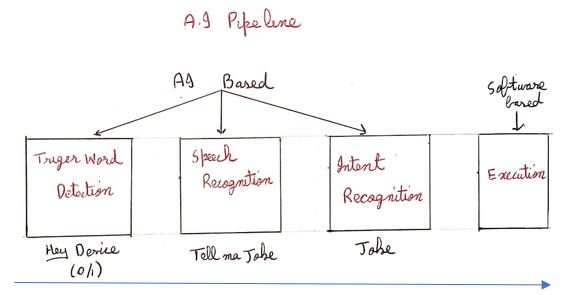 A.I Pipeline
AI Based
Software
based
Triger Word
Detection
Speech
Recognition
Intent
Recognition
Execution
Hey Device
(0/1)
Tell ma Joke
Joke